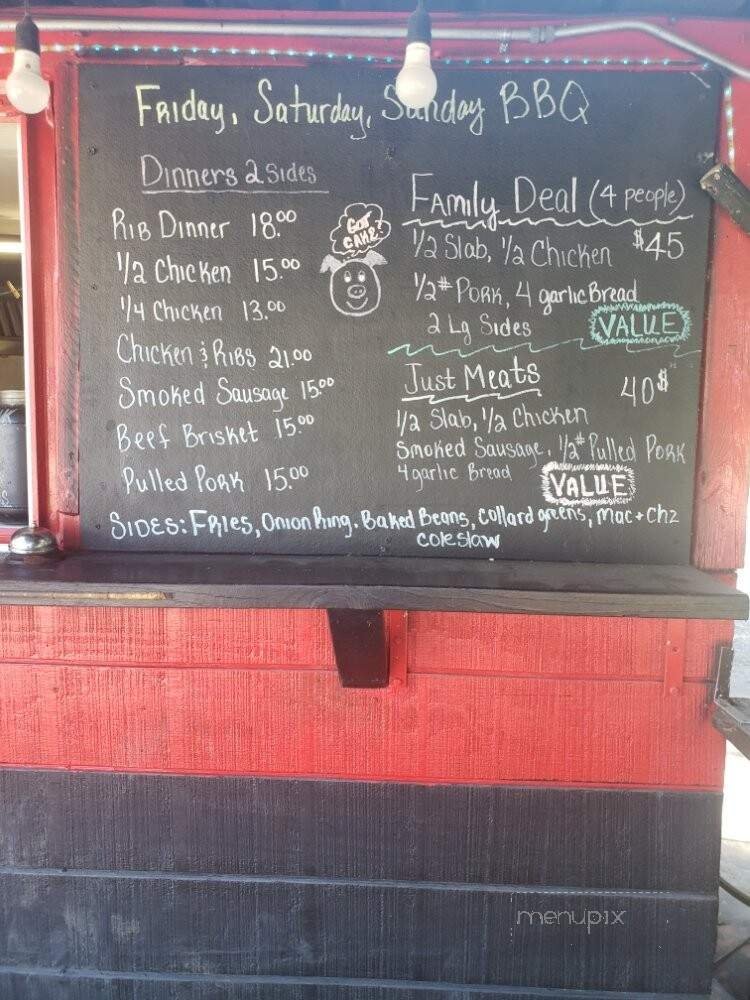 Friday, Saturday, Sunday BBQ
Dinners 2 Sides
Rib Dinner 18.00
1/2 Chicken 15.00
1/4 Chicken 13.00
Chicken & Ribs 21.00
Smoked Sausage 15.00
Beef Brisket 15.00
Pulled Pork 15.00
Got
Cake?
Family Deal (4 people)
1/2 Slab, 1/2 Chicken $45
1/2# Pork, 4 garlic Bread
2 Lg Sides VALUE
Just Meats
40$
1/2 Slab, 1/2 Chicken
Smoked Sausage, 1/2# Pulled Pork
4 garlic Bread
VALUE
Sides: Fries, Onion Ring. Baked Beans, collard greens, mac + chz
coleslaw
menupix